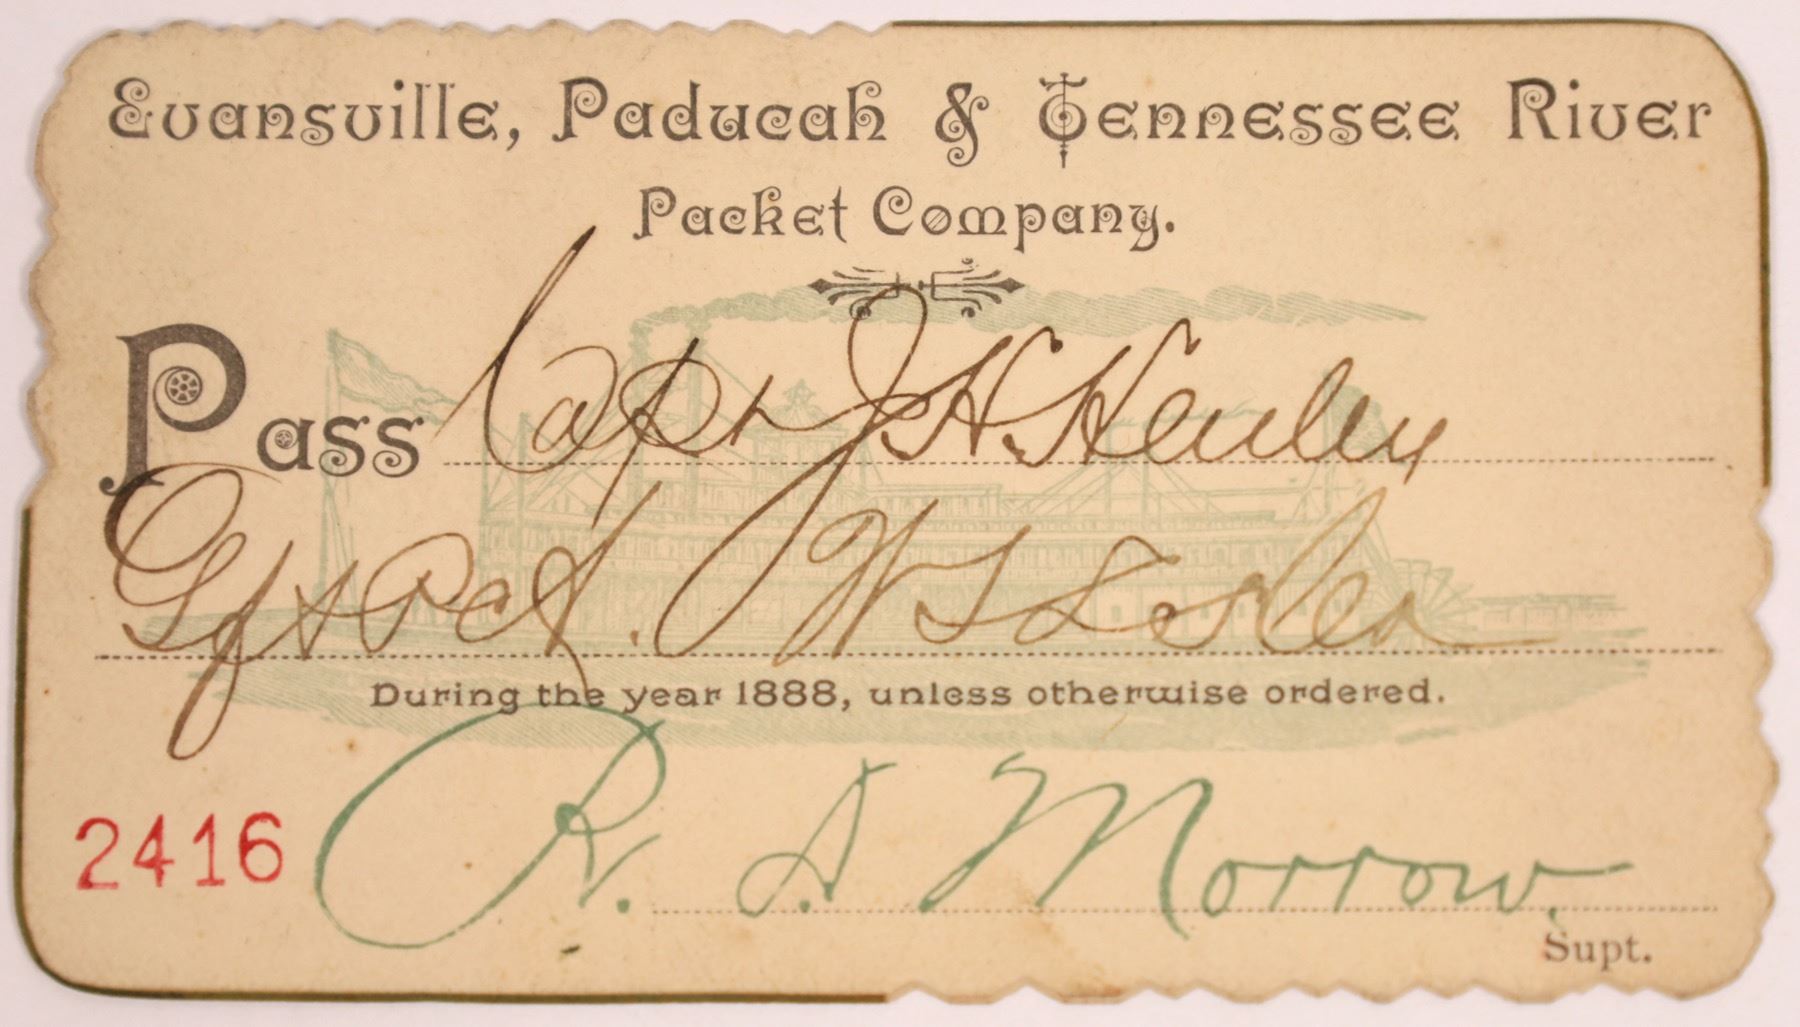 Evansville, Paducah & Tennessee River
Packet Company.
Pass Capt J. H. Henley
During the year 1888, unless otherwise ordered.
2416 R. A. Morrow.
Supt.